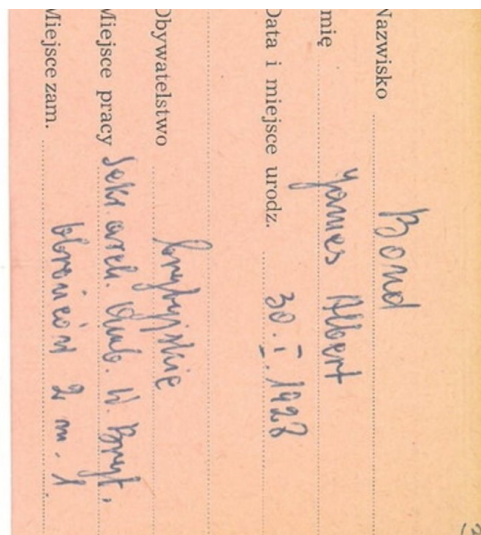 Nazwisko Bond
mię James Albert
Data i miejsce urodz. 30.I.1928
Obywatelstwo brytyjskie
Miejsce pracy Sekr. arch. Amb. W. Bryt.
Miejsce zam. Obrońców 2 m. 1